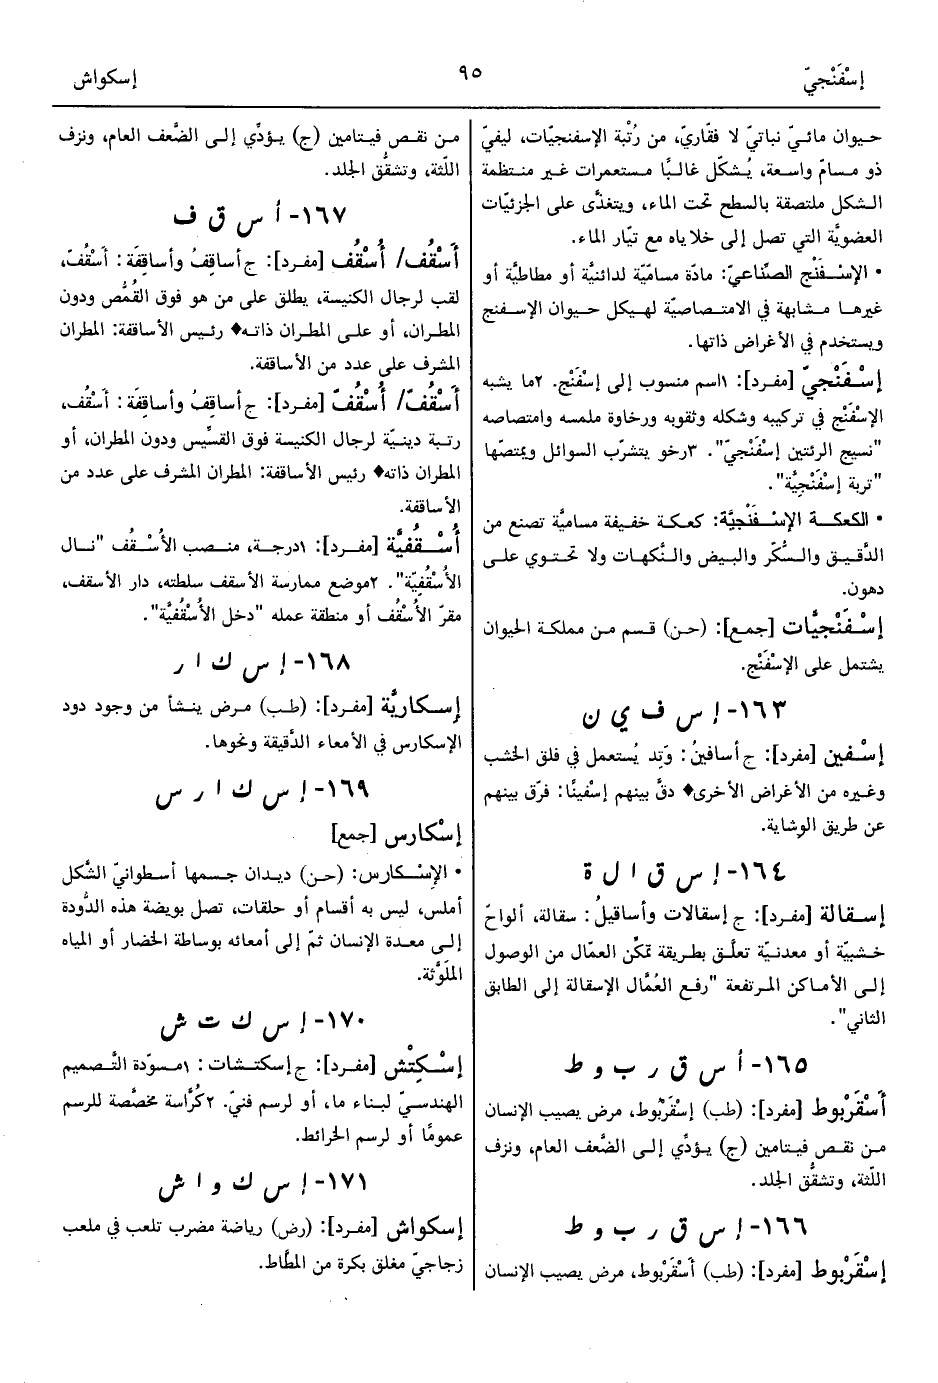 إسْفَنْجيّ
٩٥
إسكواش
حيوان مائيّ نباتي لا فقّاريّ، من رُتْبة الإسفنجيّات، ليفيّ
ذو مسامّ واسعة، يُشكّل غالبًا مستعمرات غير منتظمة
الشكل ملتصقة بالسطح تحت الماء، ويتغذّى على الجزئيّات
العضويَّة التي تصل إلى خلاياه مع تيّار الماء.
• الإسْفَنْج الصِّناعيّ: مادّة مساميّة لدائنيَّة أو مطاطيَّة أو
غيرها مشابهة في الامتصاصيّة لهيكل حيوان الإسفنج
ويستخدم في الأغراض ذاتها.
إسْفَنْجيّ [مفرد]: ١اسم منسوب إلى إسْفَنْج. ٢ما يشبه
الإسْفَنْج في تركيبه وشكله وثقوبه ورخاوة ملمسه وامتصاصه
"نسيج الرئتين إسْفَنْجيّ". ٣رخو يتشرّب السوائل ويمتصّها
"تربة إسْفَنْجيَّة".
• الكعكة الإسْفَنْجيَّة: كعكة خفيفة مساميَّة تصنع من
الدَّقيق والسُّكّر والبيض والنَّكهات ولا تحتوي على
دهون.
إسْفَنْجيَّات [جمع]: (حن) قسم من مملكة الحيوان
يشتمل على الإسْفَنْج.
١٦٣- إ س ف ي ن
إسْفين [مفرد]: ج أسافينُ: وَتِد يُستعمل في فلق الخشب
وغيره من الأغراض الأخرى♦ دقَّ بينهم إسْفينًا: فرّق بينهم
عن طريق الوشاية.
١٦٤- إ س ق ا ل ة
إسقالة [مفرد]: ج إسقالات وأساقيلُ: سقالة، ألواحٌ
خشبيّة أو معدنيّة تعلَّق بطريقة تمكِّن العمّال من الوصول
إلى الأماكن المرتفعة "رفع العُمَّال الإسقالة إلى الطابق
الثاني".
١٦٥- أ س ق ر ب و ط
أسْقَرْبوط [مفرد]: (طب) إسْقَرْبُوط، مرض يصيب الإنسان
من نقص فيتامين (ج) يؤدِّي إلى الضَّعف العام، ونزف
اللّثة، وتشقُّق الجلد.
١٦٦- إ س ق ر ب و ط
إسْقَرْبوط [مفرد]: (طب) أسْقَرْبُوط، مرض يصيب الإنسان
من نقص فيتامين (ج) يؤدِّي إلى الضَّعف العام، ونزف
اللّثة، وتشقُّق الجلد.
١٦٧- أ س ق ف
أَسْقُف/ أُسْقُف [مفرد]: ج أساقِفُ وأساقِفَة: أسْقُفّ،
لقب لرجال الكنيسة، يطلق على من هو فوق القُمُّص ودون
المطران، أو على المطران ذاته♦ رئيس الأساقفة: المطران
المشرف على عدد من الأساقفة.
أَسْقُفّ/ أُسْقُفّ [مفرد]: ج أساقِفُ وأساقِفَة: أسْقُف،
رتبة دينيّة لرجال الكنيسة فوق القسِّيس ودون المطران، أو
المطران ذاته♦ رئيس الأساقفة: المطران المشرف على عدد من
الأساقفة.
أُسْقُفيَّة [مفرد]: ١درجة، منصب الأسْقُف "نال
الأسْقُفيّة". ٢موضع ممارسة الأسقف سلطته، دار الأسقف،
مقرّ الأسْقُف أو منطقة عمله "دخل الأُسْقُفيَّة".
١٦٨- إ س ك ا ر
إسكاريَّة [مفرد]: (طب) مرض ينشأ من وجود دود
الإسكارس في الأمعاء الدَّقيقة ونحوها.
١٦٩- إ س ك ا ر س
إسْكارس [جمع]
• الإسْكارس: (حن) ديدان جسمها أسطوانيّ الشَّكل
أملس، ليس به أقسام أو حلقات، تصل بويضة هذه الدُّودة
إلى معدة الإنسان ثمّ إلى أمعائه بوساطة الخضار أو المياه
الملَوَّثة.
١٧٠- إ س ك ت ش
إسْكِتْش [مفرد]: ج إسكتشات: ١مسوّدة التَّصميم
الهندسيّ لبناء ما، أو لرسم فنيّ. ٢كُرَّاسة مخصَّصة للرسم
عمومًا أو لرسم الخرائط.
١٧١- إ س ك و ا ش
إسكواش [مفرد]: (رض) رياضة مضرب تلعب في ملعب
زجاجيّ مغلق بكرة من المطَّاط.